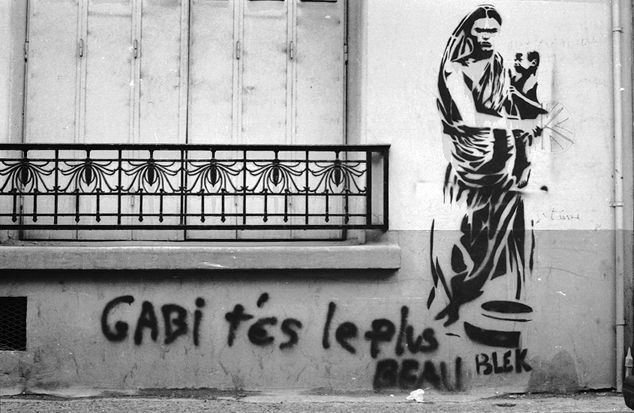 GABi t'és le plus
BEAU
BLEK